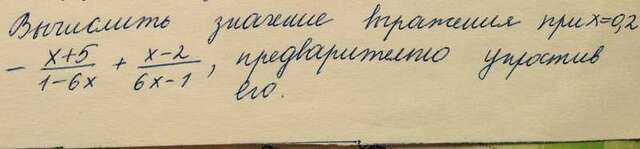 Вычислить значение выражения при x=0,2
- \frac{x+5}{1-6x} + \frac{x-2}{6x-1}, предварительно упростив
его.